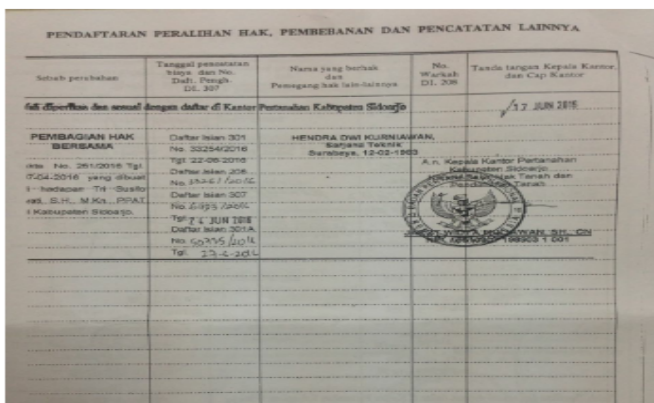 PENDAFTARAN PERALIHAN HAK, PEMBEBANAN DAN PENCATATAN LAINNYA
Sebab perubahan
Tanggal pencatatan
biaya dan No.
Daft. Pengh.
DI. 307
Nama yang berhak
dan
Pemegang hak lain-lainnya
No.
Warkah
DI. 208
Tanda tangan Kepala Kantor
dan Cap Kantor
diperiksa dan sesuai dengan daftar di Kantor Pertanahan Kabupaten Sidoarjo
17 JUN 2016
PEMBAGIAN HAK
BERSAMA
No. 261/2016 Tgl.
-04-2016 yang dibuat
hadapan Tri Susilo
S.H., M.Kn., PPAT
Kabupaten Sidoarjo.
Daftar Isian 301
No. 33254/2016
Tgl. 22-06-2016
Daftar Isian 208
No.
Daftar Isian 307
No.
Tgl. JUN 2016
Daftar Isian 301A
No.
Tgl.
HENDRA DWI KURNIAWAN,
Sarjana Teknik
Surabaya, 12-02-
A.n. Kepala Kantor Pertanahan
Kabupaten Sidoarjo
Hak Tanah dan
Pendaftaran Tanah
SH., CN
199303 1 001